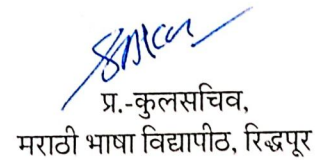 प्र.-कुलसचिव,
मराठी भाषा विद्यापीठ, रिद्धपूर